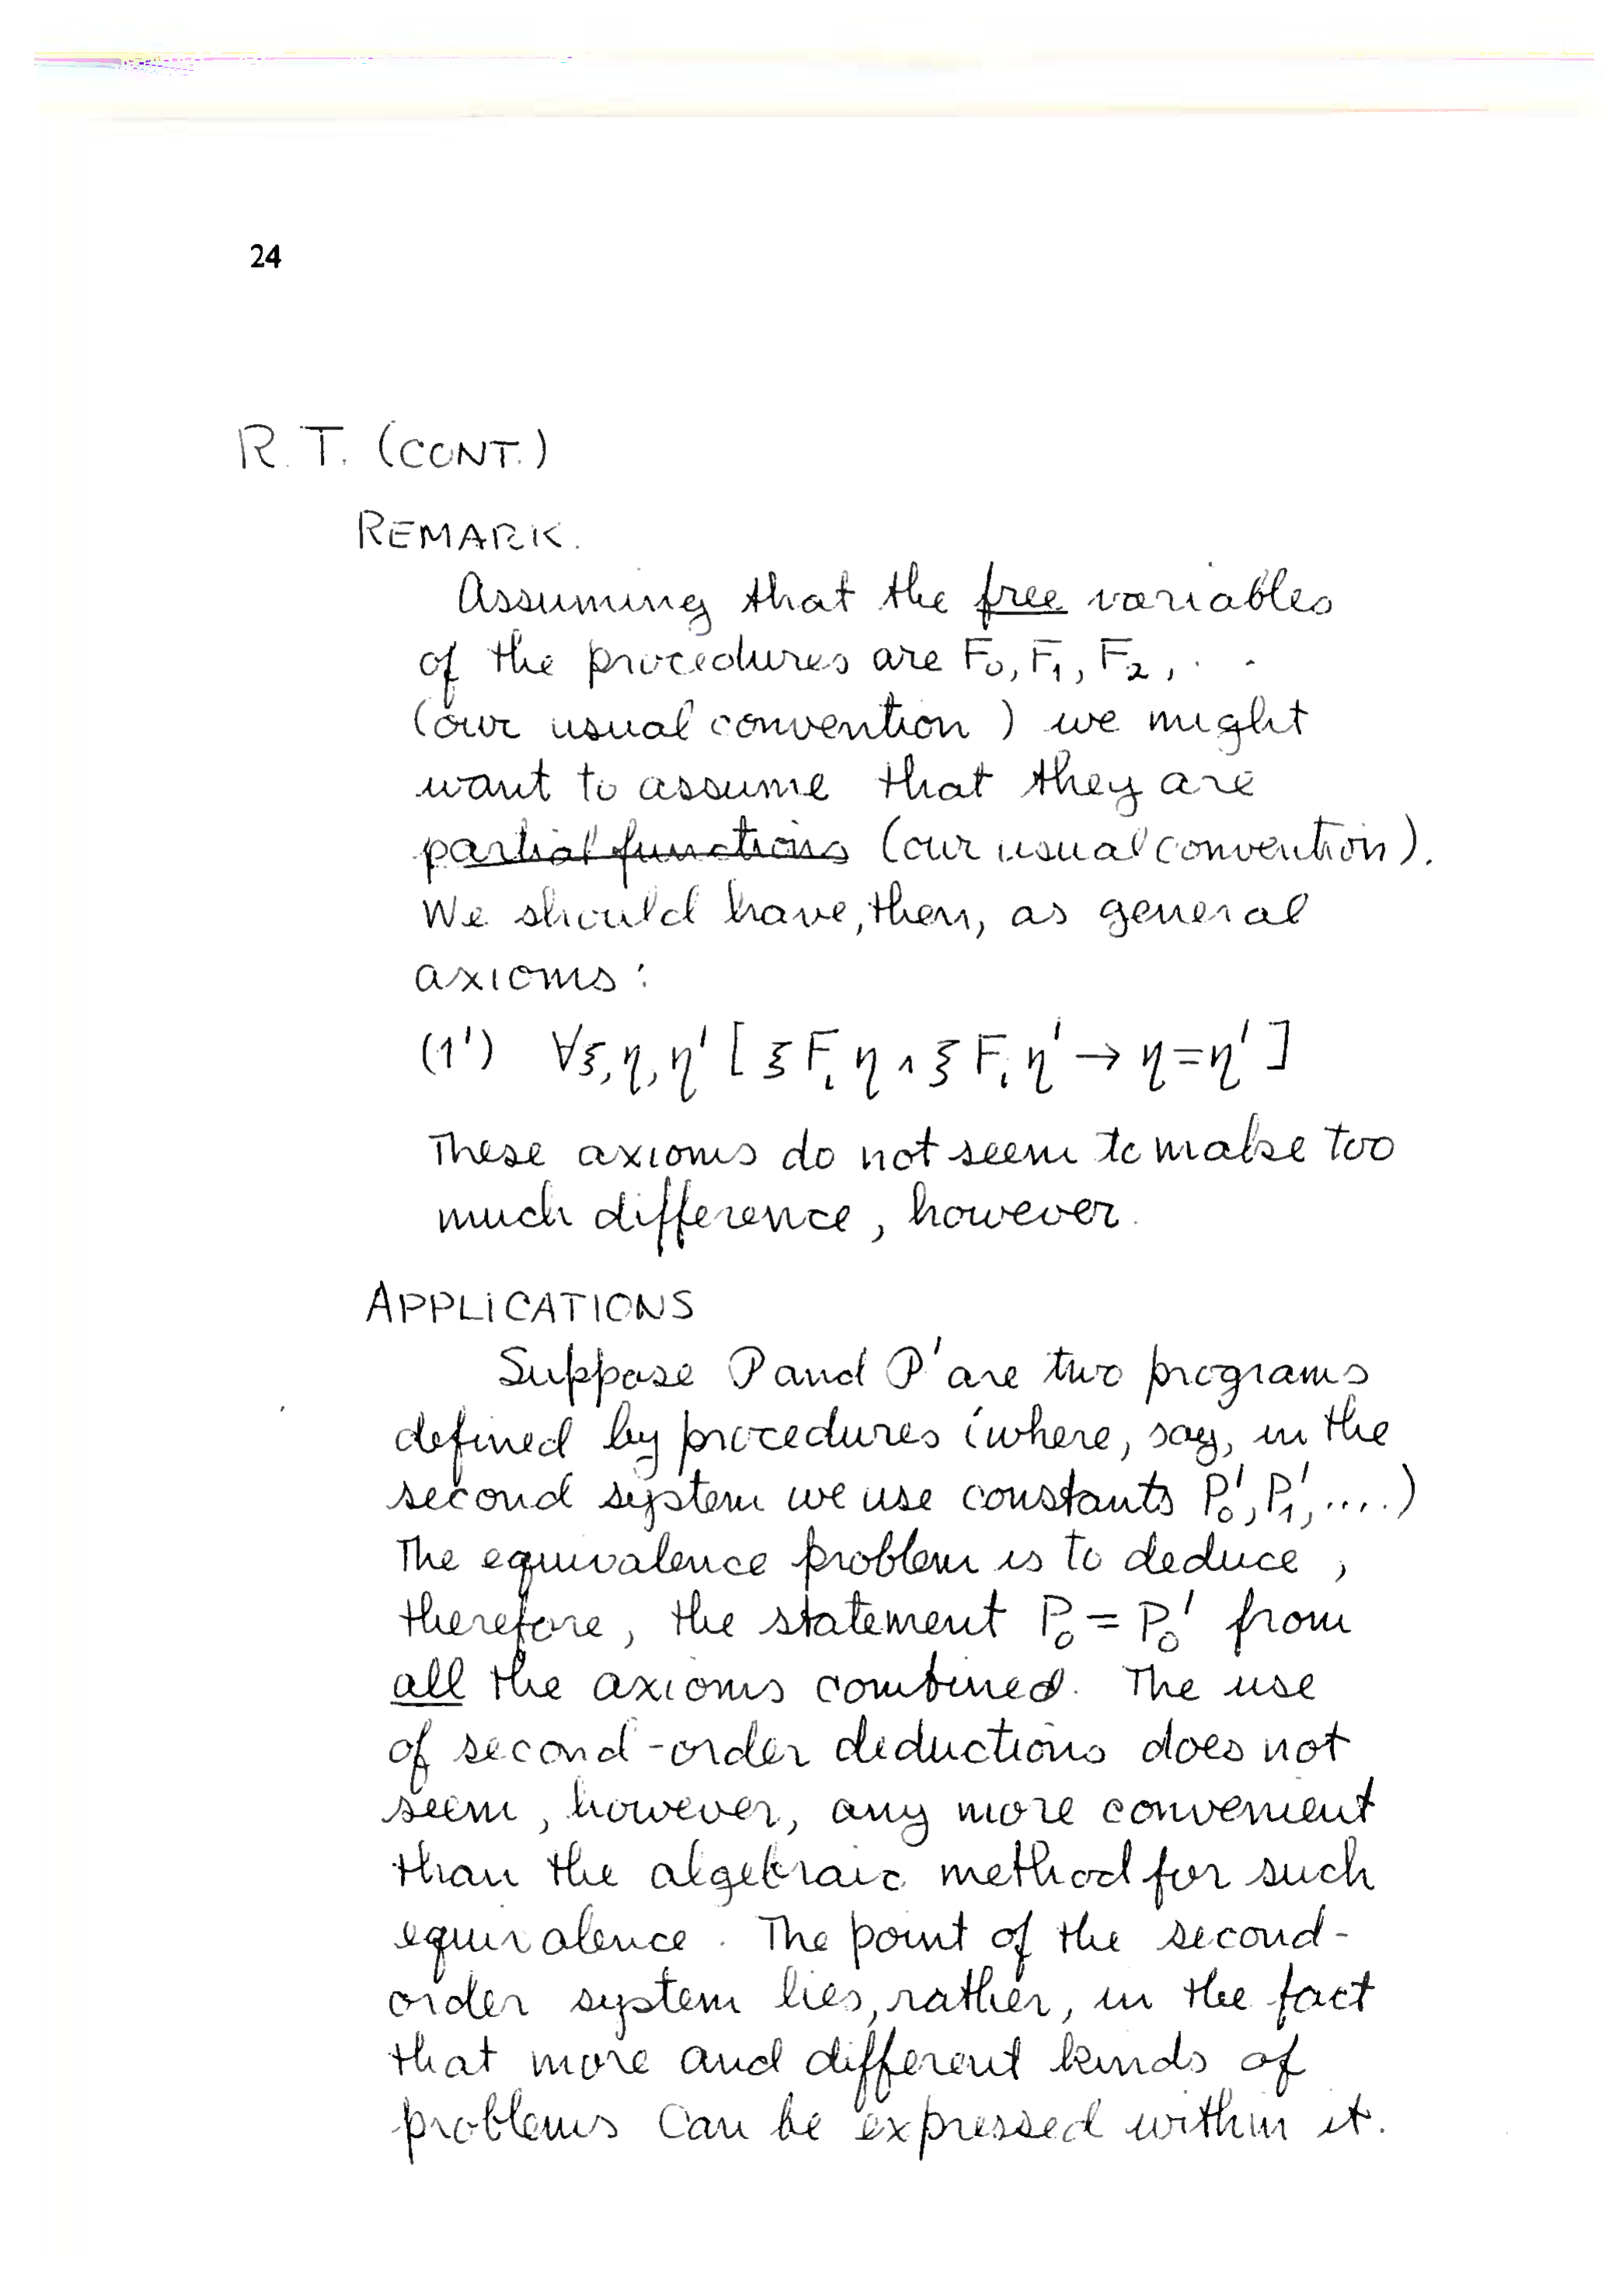 24
R.T. (CONT.)
REMARK.
Assuming that the free variables
of the procedures are F₀, F₁, F₂, . .
(our usual convention) we might
want to assume that they are
partial functions (our usual convention).
We should have, then, as general
axioms:
(1') ∀ξ,η,η' [ ξ Fᵢ η ∧ ξ Fᵢ η' → η=η' ]
These axioms do not seem to make too
much difference, however.
APPLICATIONS
Suppose P and P' are two programs
defined by procedures (where, say, in the
second system we use constants P₀', P₁', ....)
The equivalence problem is to deduce,
therefore, the statement P₀ = P₀' from
all the axioms combined. The use
of second-order deductions does not
seem, however, any more convenient
than the algebraic method for such
equivalence. The point of the second-
order system lies, rather, in the fact
that more and different kinds of
problems can be expressed within it.